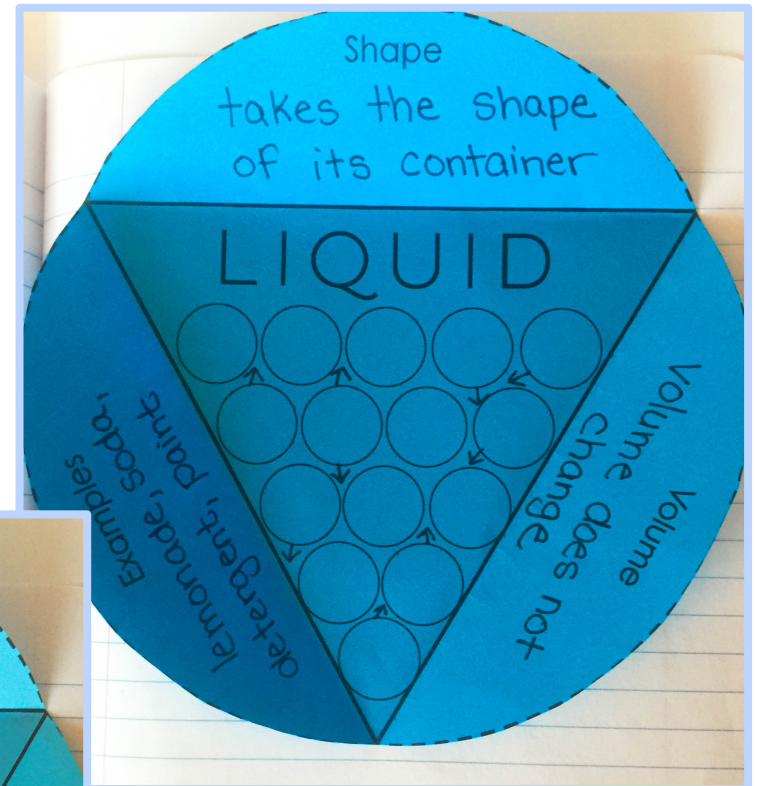 Shape
takes the shape
of its container
LIQUID
Volume
volume does not
change
Examples
lemonade, soda,
detergent, paint